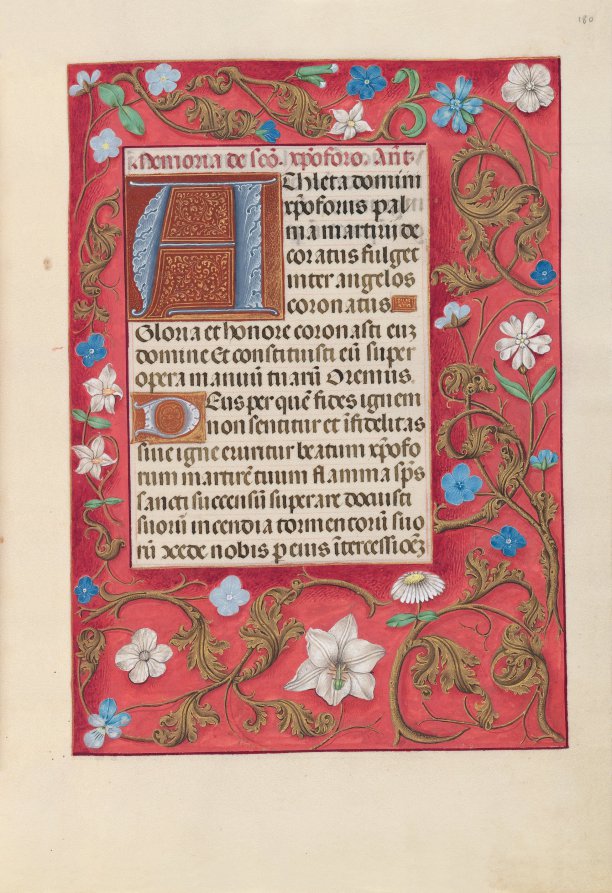 180
Memoria de sco. xpoforo. Ant
Athleta domini
xpoforus pal
ma martirii de
coratus fulget
inter angelos
coronatus
Gloria et honore coronasti euz
domine Et constituisti eū super
opera manuū tuarū Oremus
Deus per quē fides ignem
non sentitur et ifidelitas
siue igne exuritur beatum xpofo
rum martirē tuum flamma sps
sancti succensū superare docuisti
suorū incendia tormentorū suo
rū xcede nobis penis īterceſſioēz